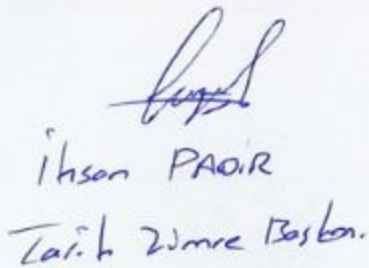 İhsan PADIR
Tarih Zümre Başkan.